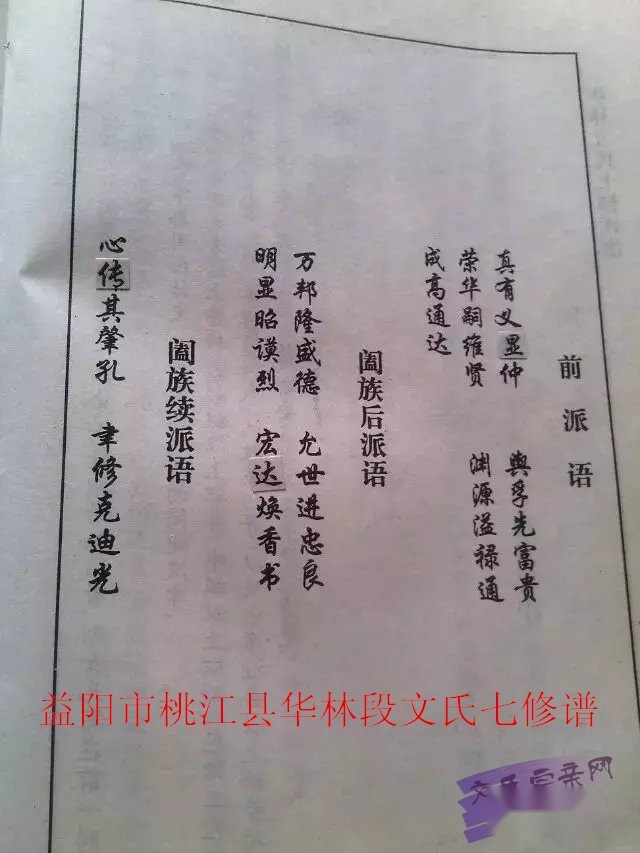 前派语
真有义显仲 與孚先富貴
荣华嗣维贤 渊源溢禄通
成高通达
阖族后派语
万邦隆盛德 允世进忠良
明显昭谟烈 宏达焕香书
阖族续派语
心传其肇孔 聿修克迪光
益阳市桃江县华林段文氏七修谱
文氏宗亲网